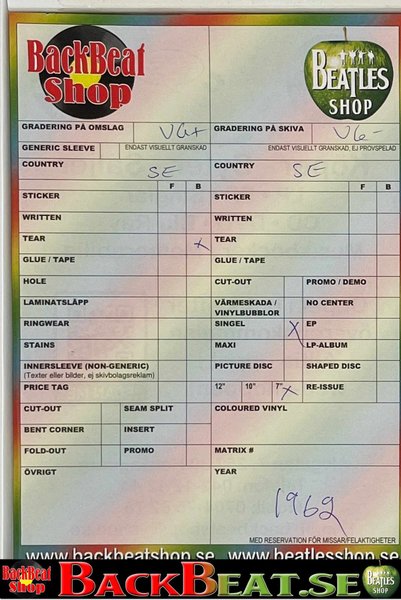 BackBeat Shop
BEATLES SHOP
GRADERING PÅ OMSLAG VG+ GRADERING PÅ SKIVA VG-
GENERIC SLEEVE ENDAST VISUELLT GRANSKAD ENDAST VISUELLT GRANSKAD, EJ PROVSPELAD
COUNTRY SE COUNTRY SE
F B F B
STICKER STICKER
WRITTEN WRITTEN
TEAR x TEAR
GLUE / TAPE GLUE / TAPE
HOLE CUT-OUT PROMO / DEMO
LAMINATSLÄPP VÄRMESKADA / VINYLBUBBLOR NO CENTER
RINGWEAR SINGEL X EP
STAINS MAXI LP-ALBUM
INNERSLEEVE (NON-GENERIC) PICTURE DISC SHAPED DISC
(Texter eller bilder, ej skivbolagsreklam)
PRICE TAG 12" 10" 7" X RE-ISSUE
CUT-OUT SEAM SPLIT COLOURED VINYL
BENT CORNER INSERT
FOLD-OUT PROMO MATRIX #
ÖVRIGT YEAR
1962
MED RESERVATION FÖR MISSAR/FELAKTIGHETER
www.backbeatshop.se www.beatlesshop.se
BackBeat Shop BACKBEAT.SE BEATLES SHOP